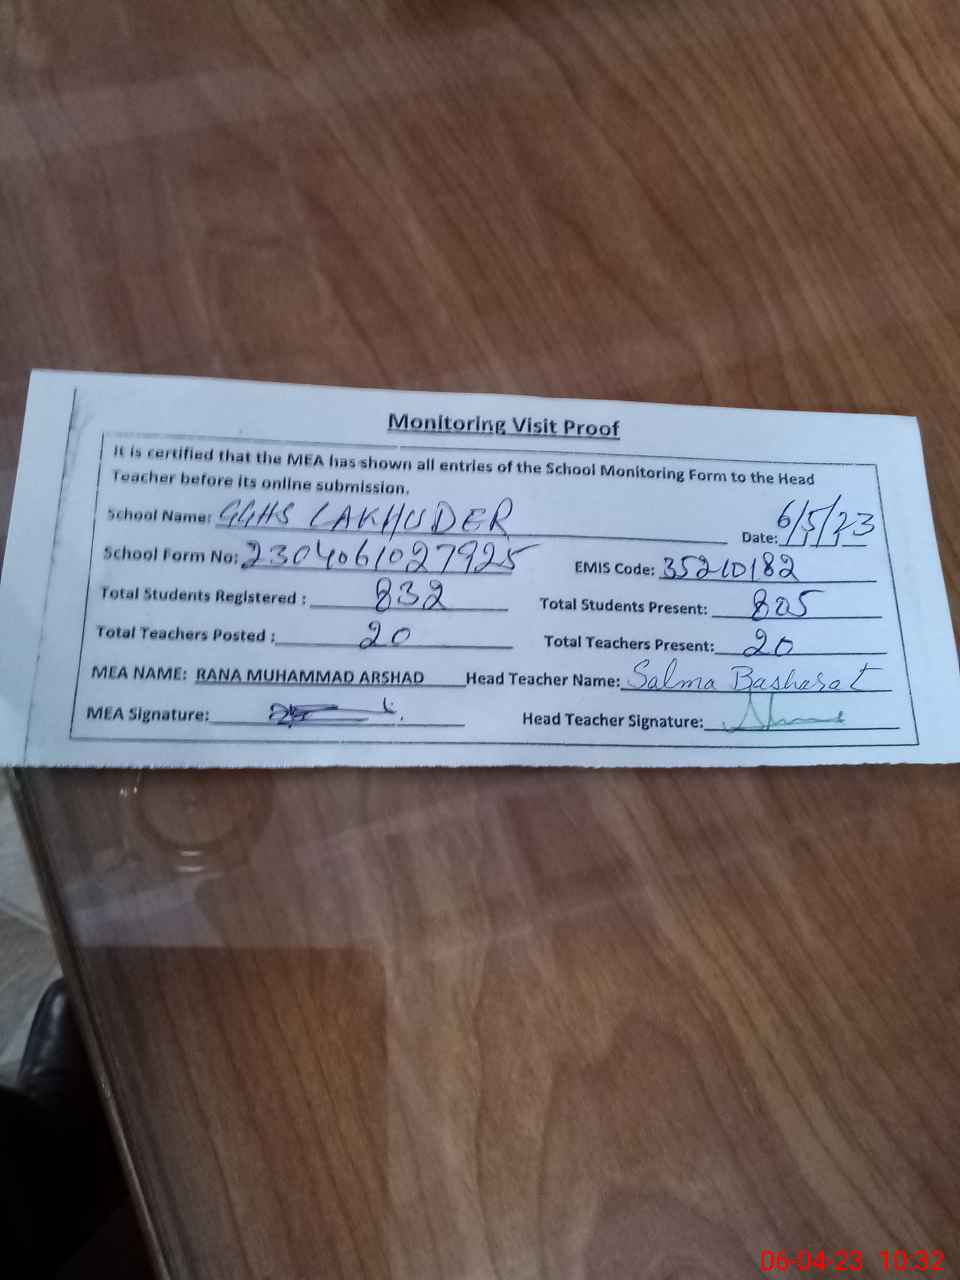 Monitoring Visit Proof
It is certified that the MEA has shown all entries of the School Monitoring Form to the Head
Teacher before its online submission.
School Name: GGHS LAKHUDER Date: 6/5/23
School Form No: 2304061027925 EMIS Code: 35210182
Total Students Registered : 832 Total Students Present: 805
Total Teachers Posted : 20 Total Teachers Present: 20
MEA NAME: RANA MUHAMMAD ARSHAD Head Teacher Name: Salma Basharat
MEA Signature: Head Teacher Signature:
06-04-23 10:32